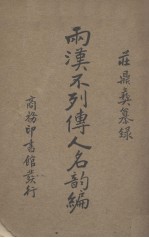 莊鼎彝纂録
兩漢不列傳人名韵編
商務印書館發行